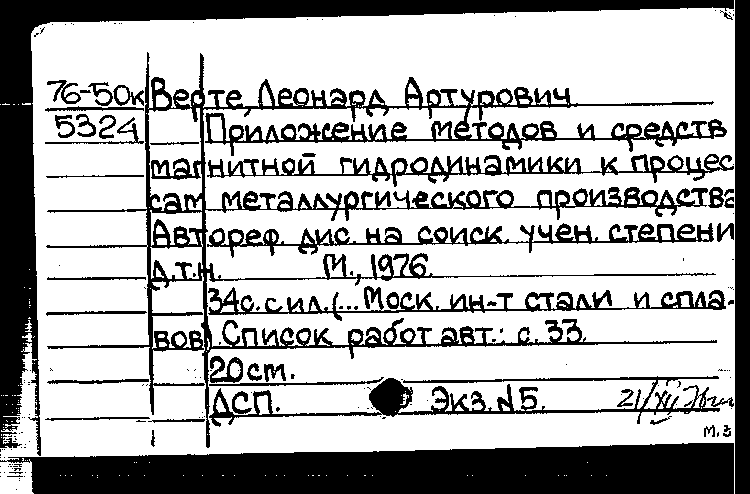 76-50к Верте, Леонард Артурович
5324 Приложение методов и средств
магнитной гидродинамики к процес
сам металлургического производства
Автореф. дис. на соиск. учен. степени
д.т.н. М., 1976.
34с. с ил. (... Моск. ин-т стали и спла-
вов) Список работ авт.: с. 33.
20см.
ДСП. Экз. №5. 21/XII
м.з